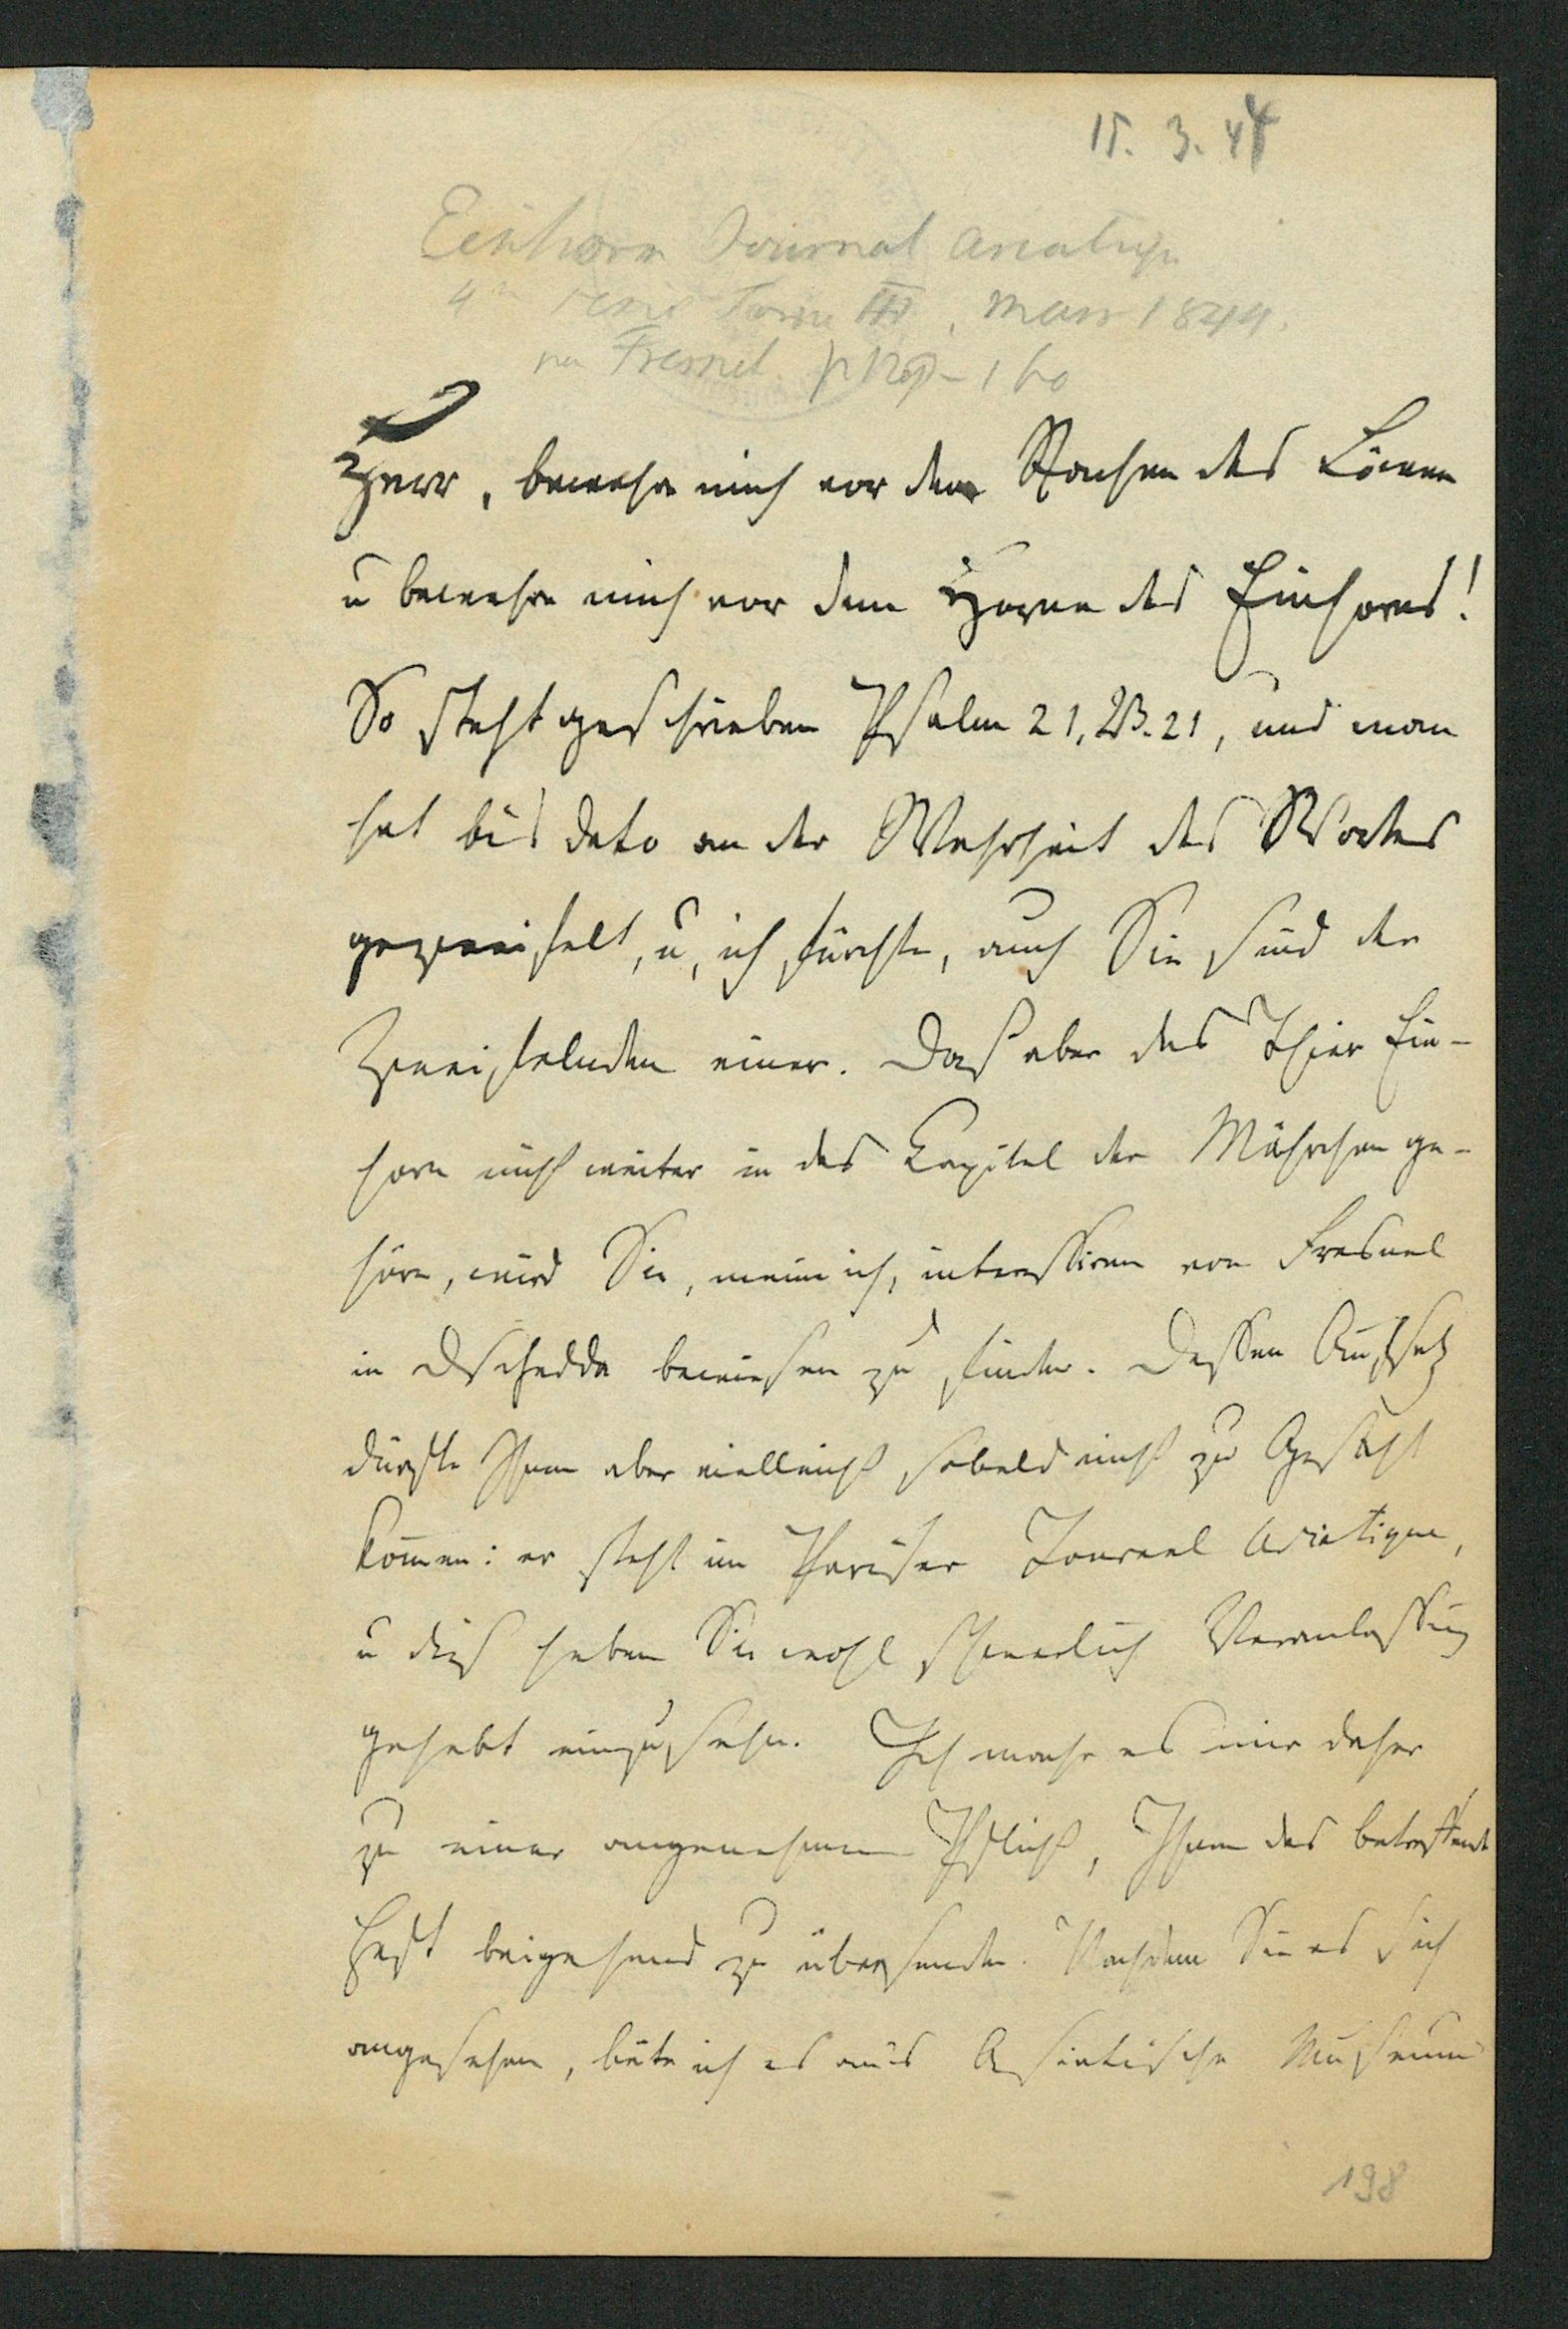 15. 3. 44
Einhorn Journal asiatique
4e serie Tome III, Mars 1844.
par Fresnel p 129-160
Herr, bewahre mich vor dem Rachen des Löwen
u bewahre mich vor dem Horne des Einhorns!
So steht geschrieben Psalm 21, V. 21, und man
hat bis dato an der Wahrheit des Wortes
gezweifelt, u, ich fürchte, auch Sie sind der
Zweifelnden einer. Daß aber das Thier Ein-
horn nicht weiter in das Capitel der Mährchen ge-
höre, wird Sie, mein ich, interessiren von Fresnel
in Dschedda bewiesen zu finden. Dessen Aufsatz
dürfte Ihnen aber vielleicht sobald nicht zu Gesicht
kommen: er steht im Pariser Journal Asiatique,
u dies haben Sie wohl schwerlich Veranlassung
gehabt einzusehn. Ich mache es mir daher
zu einer angenehmen Pflicht, Ihnen das betreffende
Heft beigehend zu übersenden. Nachdem Sie es sich
angesehen, bitte ich es ans Asiatische Museum
198